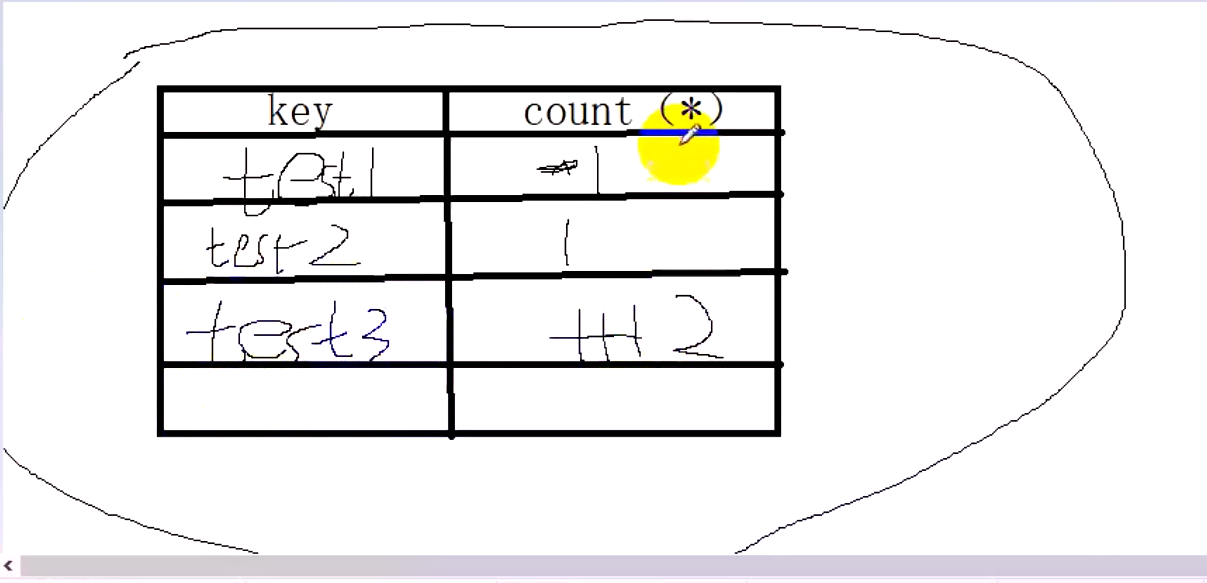 key count (*)
test1 1
test2 1
test3 2